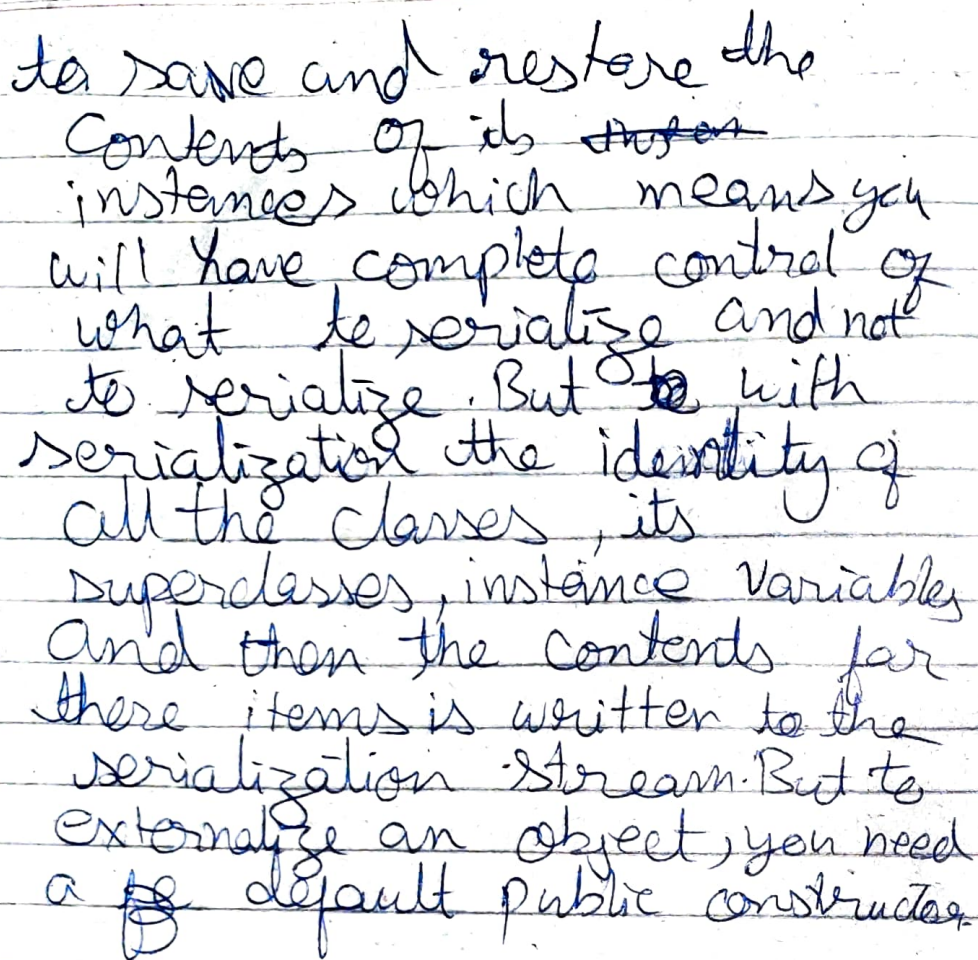 to save and restore the
Contents of its
instances which means you
will have complete control of
what to serialize and not
to serialize. But with
serialization the identity of
all the classes, its
superclasses, instance variables
and then the contents for
these items is written to the
serialization stream. But to
externalize an object, you need
a default public constructor.